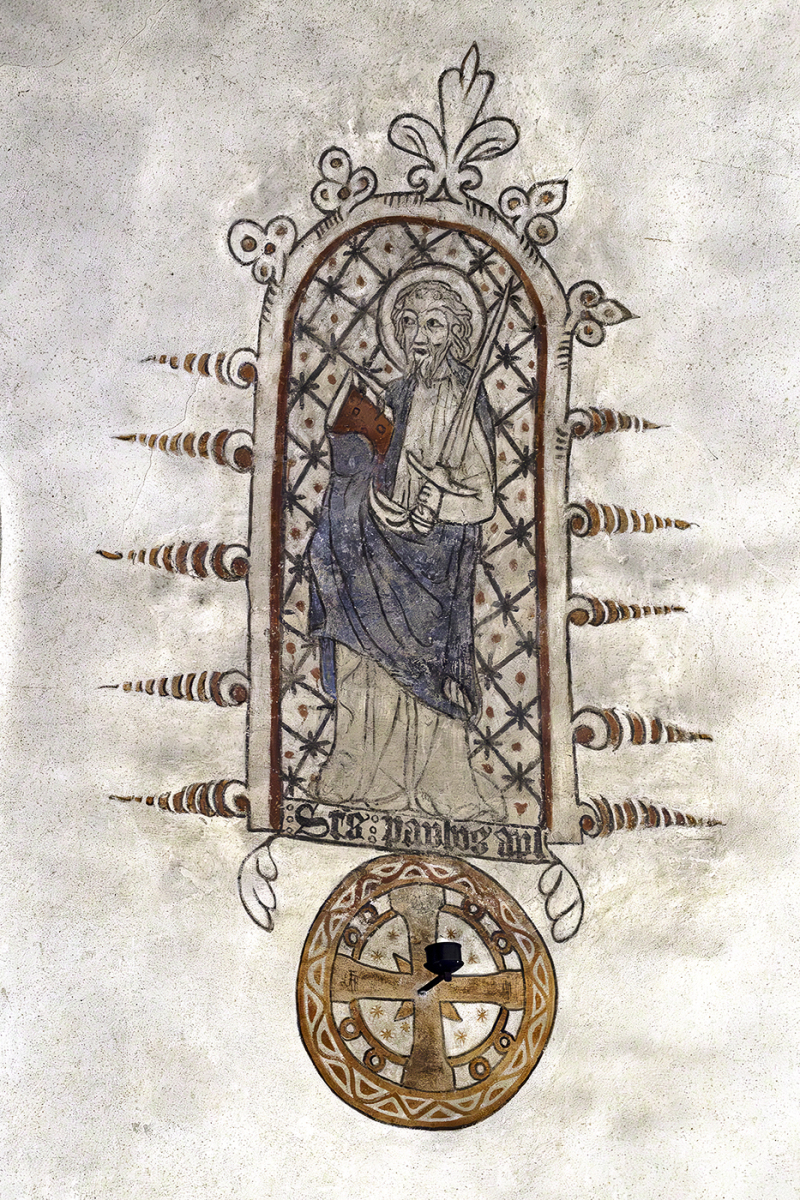 Scs : paulos apl